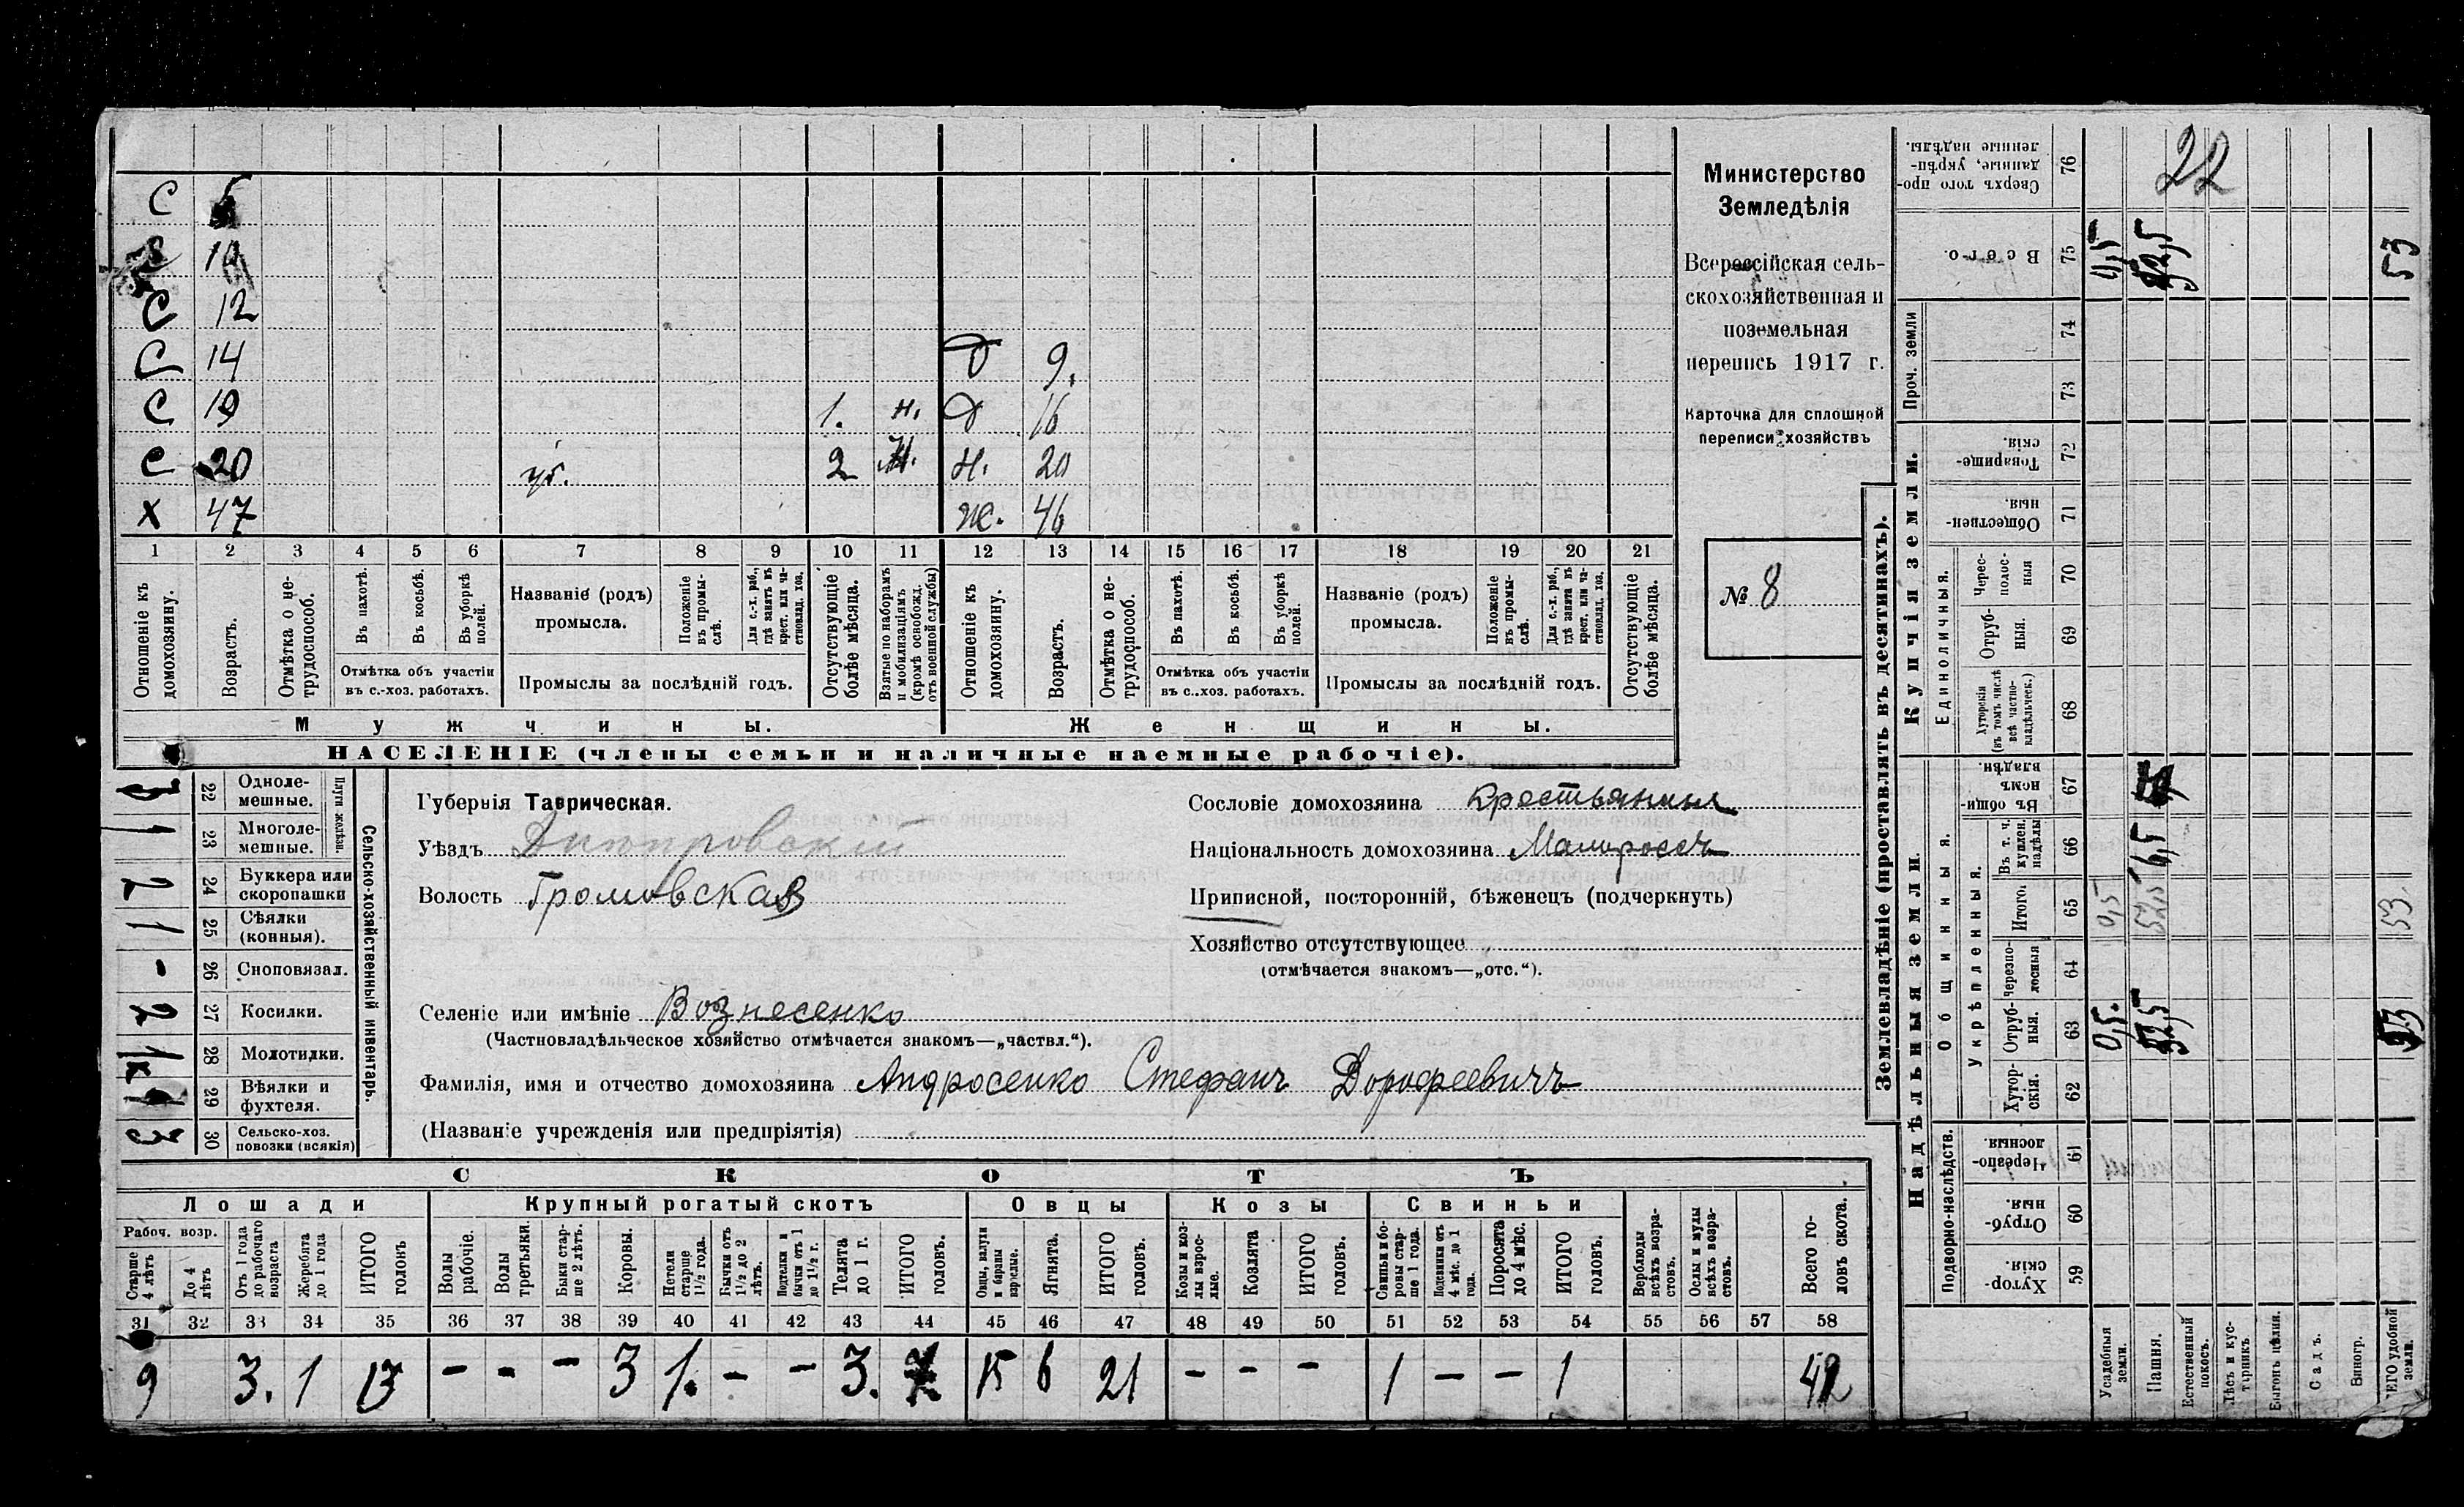 С 5
С 10
С 12
С 14 д 9.
С 19 1. н. д 16
С 20 2 н. н. 20
Х 47 ж. 46
1 2 3 4 5 6 7 8 9 10 11 12 13 14 15 16 17 18 19 20 21
Отношеніе къ домохозяину.
Возрастъ.
Отмѣтка о нетрудоспособ.
Въ пахотѣ.
Въ косьбѣ.
Въ уборкѣ полей.
Отмѣтка объ участіи въ с.-хоз. работахъ.
Названіе (родъ) промысла.
Положеніе въ промыслѣ.
Для с.-х. раб., гдѣ занятъ въ крест. или частновлад. хоз.
Промыслы за послѣдній годъ.
Отсутствующіе болѣе мѣсяца.
Взятые по наборамъ и мобилизаціямъ (кромѣ освобожд. отъ военной службы)
Отношеніе къ домохозяину.
Возрастъ.
Отмѣтка о нетрудоспособ.
Въ пахотѣ.
Въ косьбѣ.
Въ уборкѣ полей.
Отмѣтка объ участіи въ с.-хоз. работахъ.
Названіе (родъ) промысла.
Положеніе въ промыслѣ.
Для с.-х. раб., гдѣ занята въ крест. или частновлад. хоз.
Промыслы за послѣдній годъ.
Отсутствующіе болѣе мѣсяца.
Мужчины. Женщины.
НАСЕЛЕНІЕ (члены семьи и наличные наемные рабочіе).
Министерство
Земледѣлія
Всероссійская сель-
скохозяйственная и
поземельная
перепись 1917 г.
Карточка для сплошной
переписи хозяйствъ
№ 8
Сельско-хозяйственный инвентарь.
Плуги желѣзн.
22 Одноле-мешные.
1 23 Многоле-мешные.
2 24 Буккера или скоропашки
1 25 Сѣялки (конныя).
- 26 Сноповязал.
2 27 Косилки.
1к 28 Молотилки.
1 29 Вѣялки и фухтеля.
3 30 Сельско-хоз. повозки (всякія)
Губернія Таврическая.
Уѣздъ Днѣпровскій
Волость Громовская
Селеніе или имѣніе Вознесенко
(Частновладѣльческое хозяйство отмѣчается знакомъ—„частвл.“).
Фамилія, имя и отчество домохозяина Андросенко Стефанъ Дорофеевичъ
(Названіе учрежденія или предпріятія)
Сословіе домохозяина Крестьянинъ
Національность домохозяина Малороссъ
Приписной, посторонній, бѣженецъ (подчеркнуть)
Хозяйство отсутствующее
(отмѣчается знакомъ—„отс.“).
СКОТЪ
Лошади Крупный рогатый скотъ Овцы Козы Свиньи
Рабоч. возр.
Старше 4 лѣтъ
До 4 лѣтъ
Отъ 1 года до рабочаго возраста
Жеребята до 1 года
ИТОГО головъ
Волы рабочіе.
Волы третьяки.
Быки старше 2 лѣтъ.
Коровы.
Нетели старше 1½ года.
Бычки отъ 1½ до 2 лѣтъ.
Подтелки и бычки отъ 1 до 1½ г.
Телята до 1 г.
ИТОГО головъ.
Овцы, валухи и бараны взрослые.
Ягнята.
ИТОГО головъ.
Козы и козлы взрослые.
Козлята
ИТОГО головъ.
Свиньи и боровы старше 1 года.
Подсвинки отъ 4 мѣс. до 1 года.
Поросята до 4 мѣс.
ИТОГО головъ.
Верблюды всѣхъ возрастовъ.
Ослы и мулы всѣхъ возрастовъ.
Всего головъ скота.
31 32 33 34 35 36 37 38 39 40 41 42 43 44 45 46 47 48 49 50 51 52 53 54 55 56 57 58
9 3. 1 13 - - - 3 1. - - 3. 7 15 6 21 - - - 1 - - 1 42
Землевладѣніе (проставлять въ десятинахъ).
Купчія земли.
Надѣльныя земли.
Сверхъ того проданные, укрѣпленные надѣлы. 76 22
Всего. 75 0,5 52,5 53
Проч. земли 74
73
Товарищескія. 72
Общественныя 71
Единоличныя.
Чересполосныя 70
Отрубныя. 69
Хуторскія (въ томъ числѣ всѣ частновладѣльческ.) 68
Общинныя.
Въ общинномъ владѣн. 67
Укрѣпленныя.
Въ т. ч. куплен. надѣлы 66 16,5
Итого. 65 0,5 52,5 53.
Черезполосныя 64
Отрубныя. 63 0,5. 52,5 53
Хуторскія. 62
Подворно-наслѣдств.
Черезполосныя 61
Отрубныя. 60
Хуторскія. 59
Усадебныя земли.
Пашня.
Естественный покосъ.
Лѣсъ и кустарникъ
Выгонъ цѣлин.
Садъ.
Виногр.
ЕГО удобной земли.